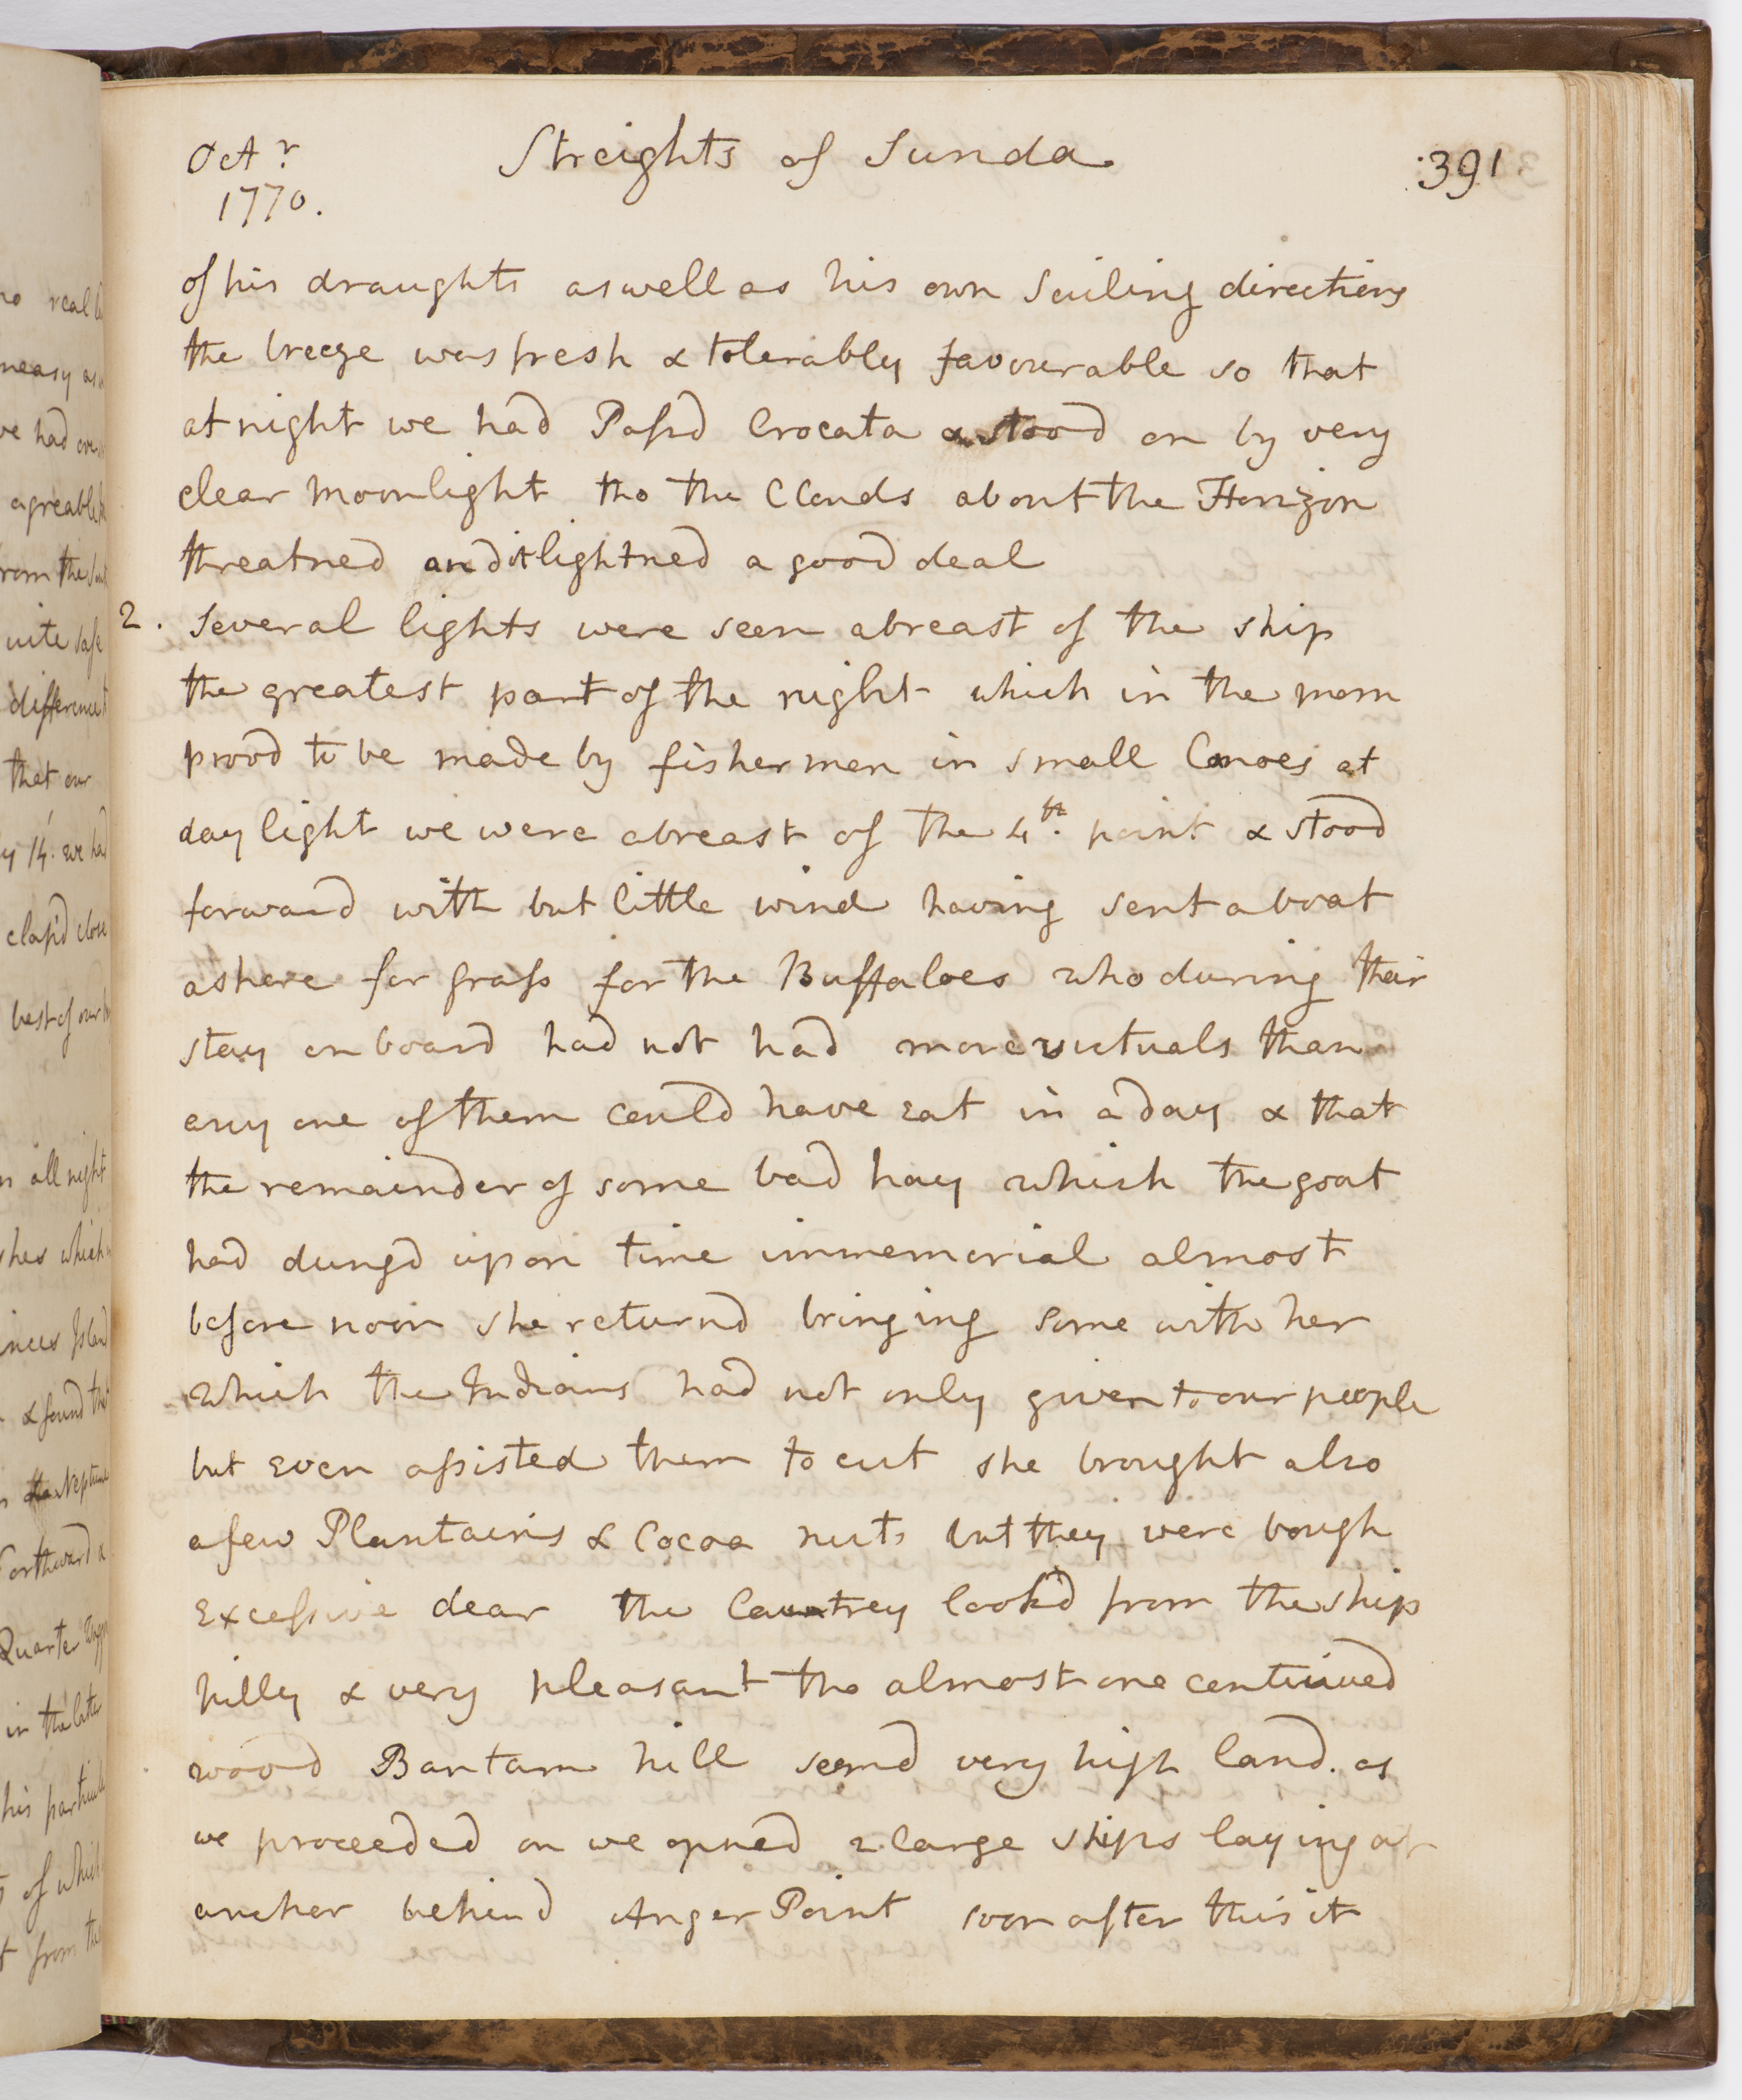 Octr
1770.
Streights of Sunda
391
of his draughts as well as his own Sailing directions
the breeze was fresh & tolerably favourable so that
at night we had Passd Crocata & stood on by very
clear moonlight tho the Clouds about the Horizon
threatned and it lightned a good deal
2. Several lights were seen abreast of the ship
the greatest part of the night which in the morn
provd to be made by fishermen in small Canoes at
day light we were abreast of the 4th. point & stood
forward with but little wind having sent a boat
ashore for grass for the Buffaloes who during their
stay on board had not had more victuals than
any one of them could have eat in a day & that
the remainder of some bad hay which the goat
had dungd upon time immemorial almost
before noon she returnd bringing some with her
which the Indians had not only given to our people
but even assisted them to cut she brought also
a few Plantains & Cocoa nuts but they were bough
excessive dear the Countrey lookd from the ship
hilly & very pleasant tho almost one continued
wood Bantam hill seemd very high land. as
we proceeded on we opned 2 large ships laying at
ancher behind Anger Point soon after this it